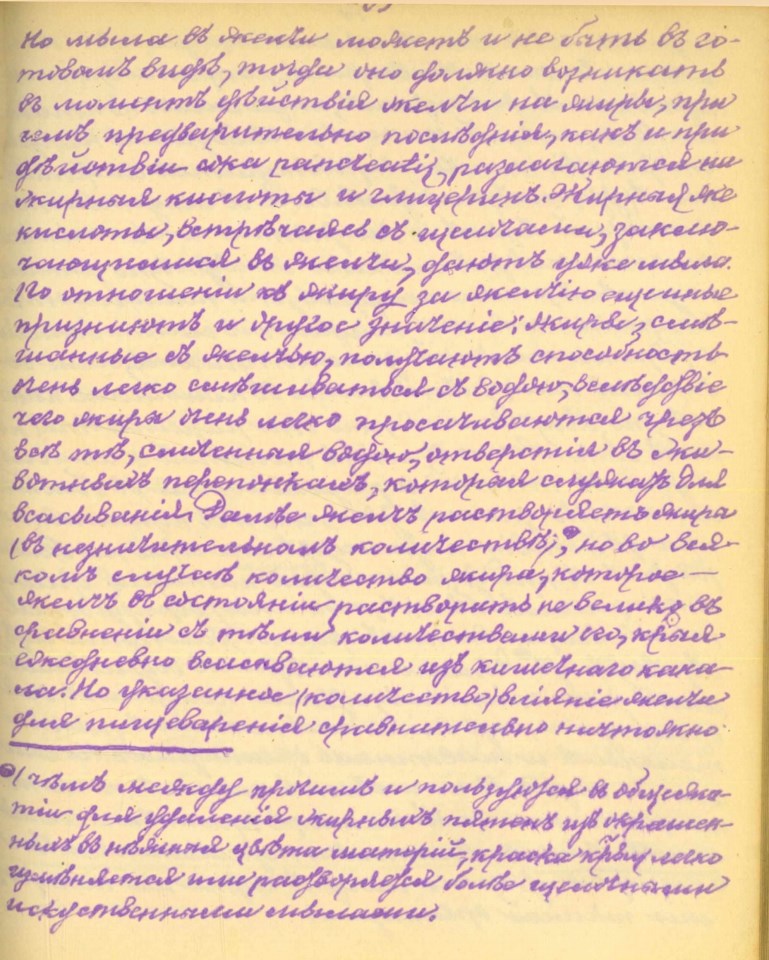 Но мыла въ желчи можетъ и не быть въ го-
товомъ видѣ, тогда оно должно возникать
въ моментъ дѣйствія желчи на жиры, при
чемъ предварительно послѣднія, какъ и при
дѣйствіи сока pancreatis, разлагаются на
жирныя кислоты и глицеринъ. Жирныя же
кислоты, встрѣчаясь съ щелочами, заклю-
чающимися въ желчи, даютъ уже мыла.
По отношенію къ жиру за желчію ученые
признаютъ и другое значеніе: жиры, смѣ-
шанные съ желчью, получаютъ способность
очень легко смѣшиваться съ водою, вслѣдствіе
чего жиры очень легко просачиваются чрезъ
всѣ тѣ, смоченныя водою, отверстія въ жи-
вотныхъ перепонкахъ, которыя служатъ для
всасыванія. Далѣе желчь растворяетъ жира
(въ незначительномъ количествѣ), но во вся-
комъ случаѣ количество жира, которое —
желчь въ состояніи растворить не велико въ
сравненіи съ тѣми количествами его, крыя
ежедневно всасываются изъ кишечнаго кана-
ла. Но указанное (количество) вліяніе желчи
для пищеваренія сравнительно ничтожно
) Чѣмъ между прочимъ и пользуются въ общежи-
тіи для удаленія жирныхъ пятенъ изъ окрашен-
ныхъ въ нѣжныя цвѣта маторій, краска крыхъ легко
измѣняется или растворяется болѣе щелочными
искуственными мылами.